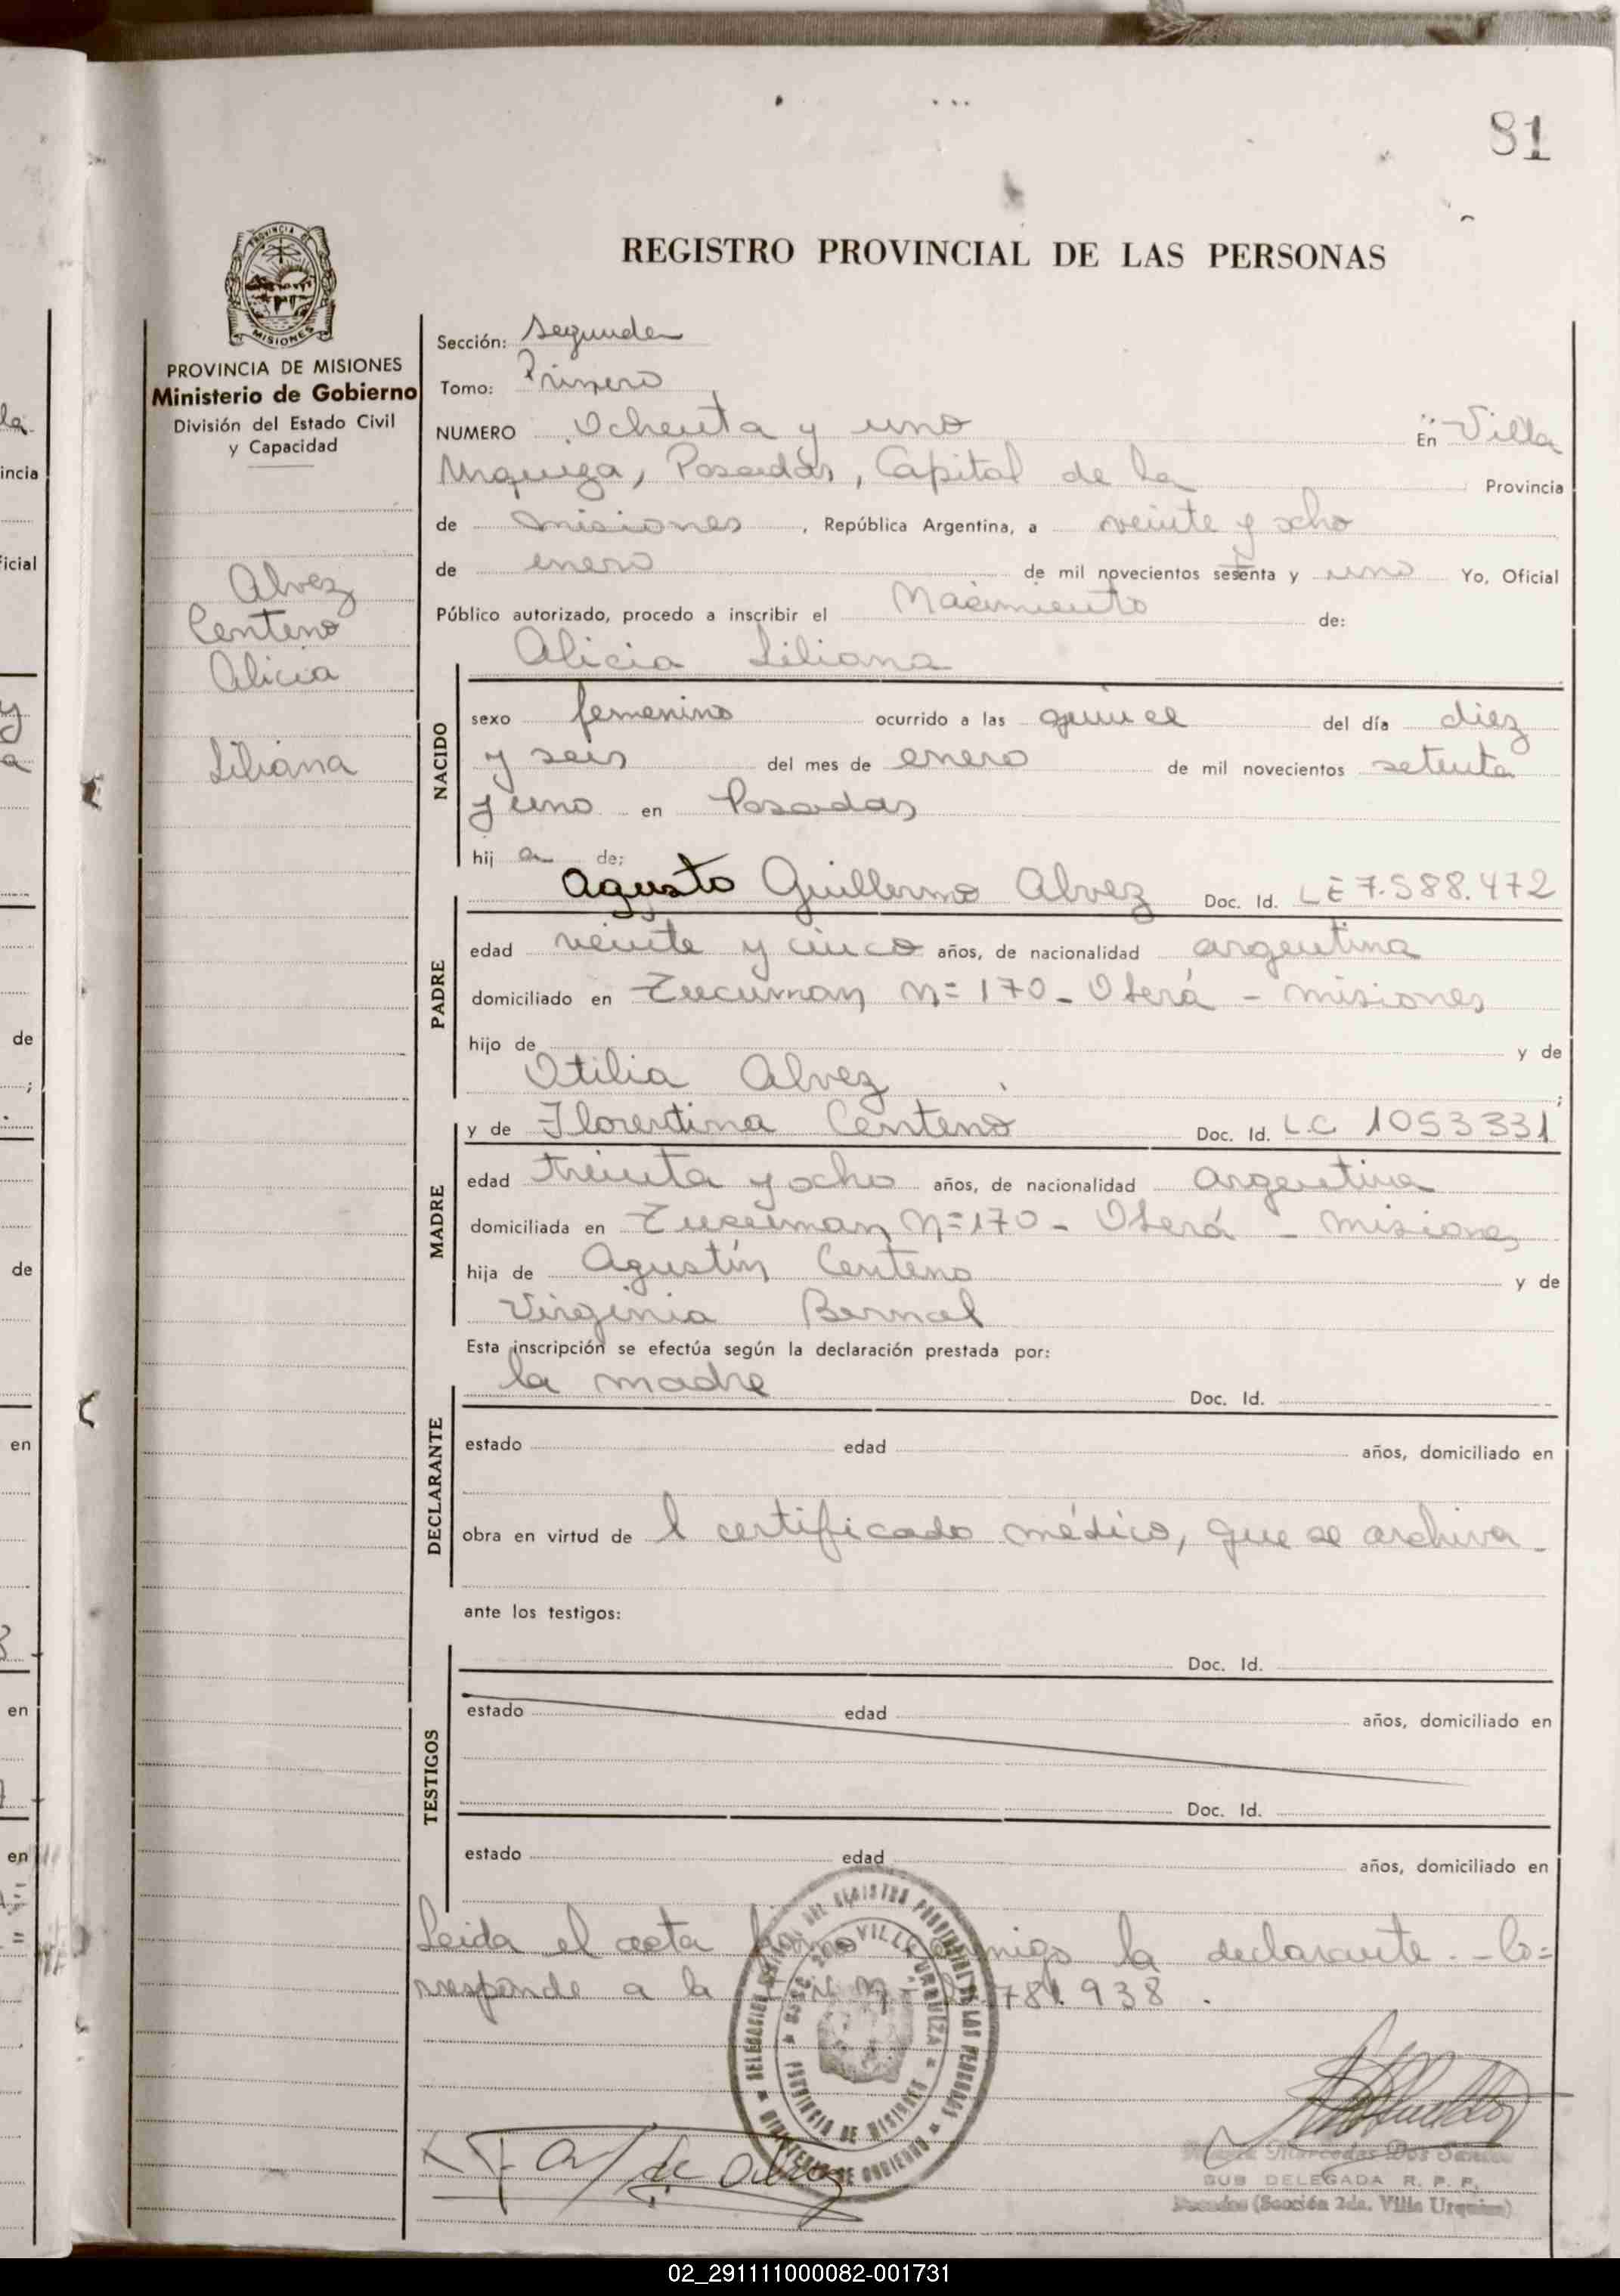 81
REGISTRO PROVINCIAL DE LAS PERSONAS
PROVINCIA DE MISIONES
Ministerio de Gobierno
División del Estado Civil
y Capacidad
Alvez
Centeno
Alicia
Liliana
Sección: Segunda
Tomo: Primero
NUMERO Ochenta y uno En Villa
Urquiza, Posadas, Capital de la Provincia
de misiones, República Argentina, a veinte y ocho
de enero de mil novecientos setenta y uno Yo, Oficial
Público autorizado, procedo a inscribir el Nacimiento de:
Alicia Liliana
NACIDO
sexo femenino ocurrido a las quince del día diez
y seis del mes de enero de mil novecientos setenta
y uno en Posadas
hij a de:
Agusto Guillermo Alvez Doc. Id. LE 7.588.472
PADRE
edad veinte y cinco años, de nacionalidad argentina
domiciliado en Tucuman N= 170 - Oberá - misiones
hijo de y de
Otilia Alvez ;
MADRE
y de Florentina Centeno Doc. Id. L.C 1053331
edad treinta y ocho años, de nacionalidad argentina
domiciliada en Tucuman N=170 - Oberá - misiones
hija de Agustín Centeno y de
Virginia Bernal
Esta inscripción se efectúa según la declaración prestada por:
la madre Doc. Id.
DECLARANTE
estado edad años, domiciliado en
obra en virtud de l certificado médico, que se archiva -
ante los testigos:
Doc. Id.
TESTIGOS
estado edad años, domiciliado en
Doc. Id.
estado edad años, domiciliado en
Leida el acta firma conmigo la declarante. - Co=
rresponde a la 781.938.
VILLA URQUIZA
PROVINCIA DE MISIONES
MINISTERIO DE GOBIERNO
de Alvez
Mercedes Dos Santos
SUB DELEGADA R. P. P.
Posadas (Sección 2da. Villa Urquiza)
02_291111000082-001731